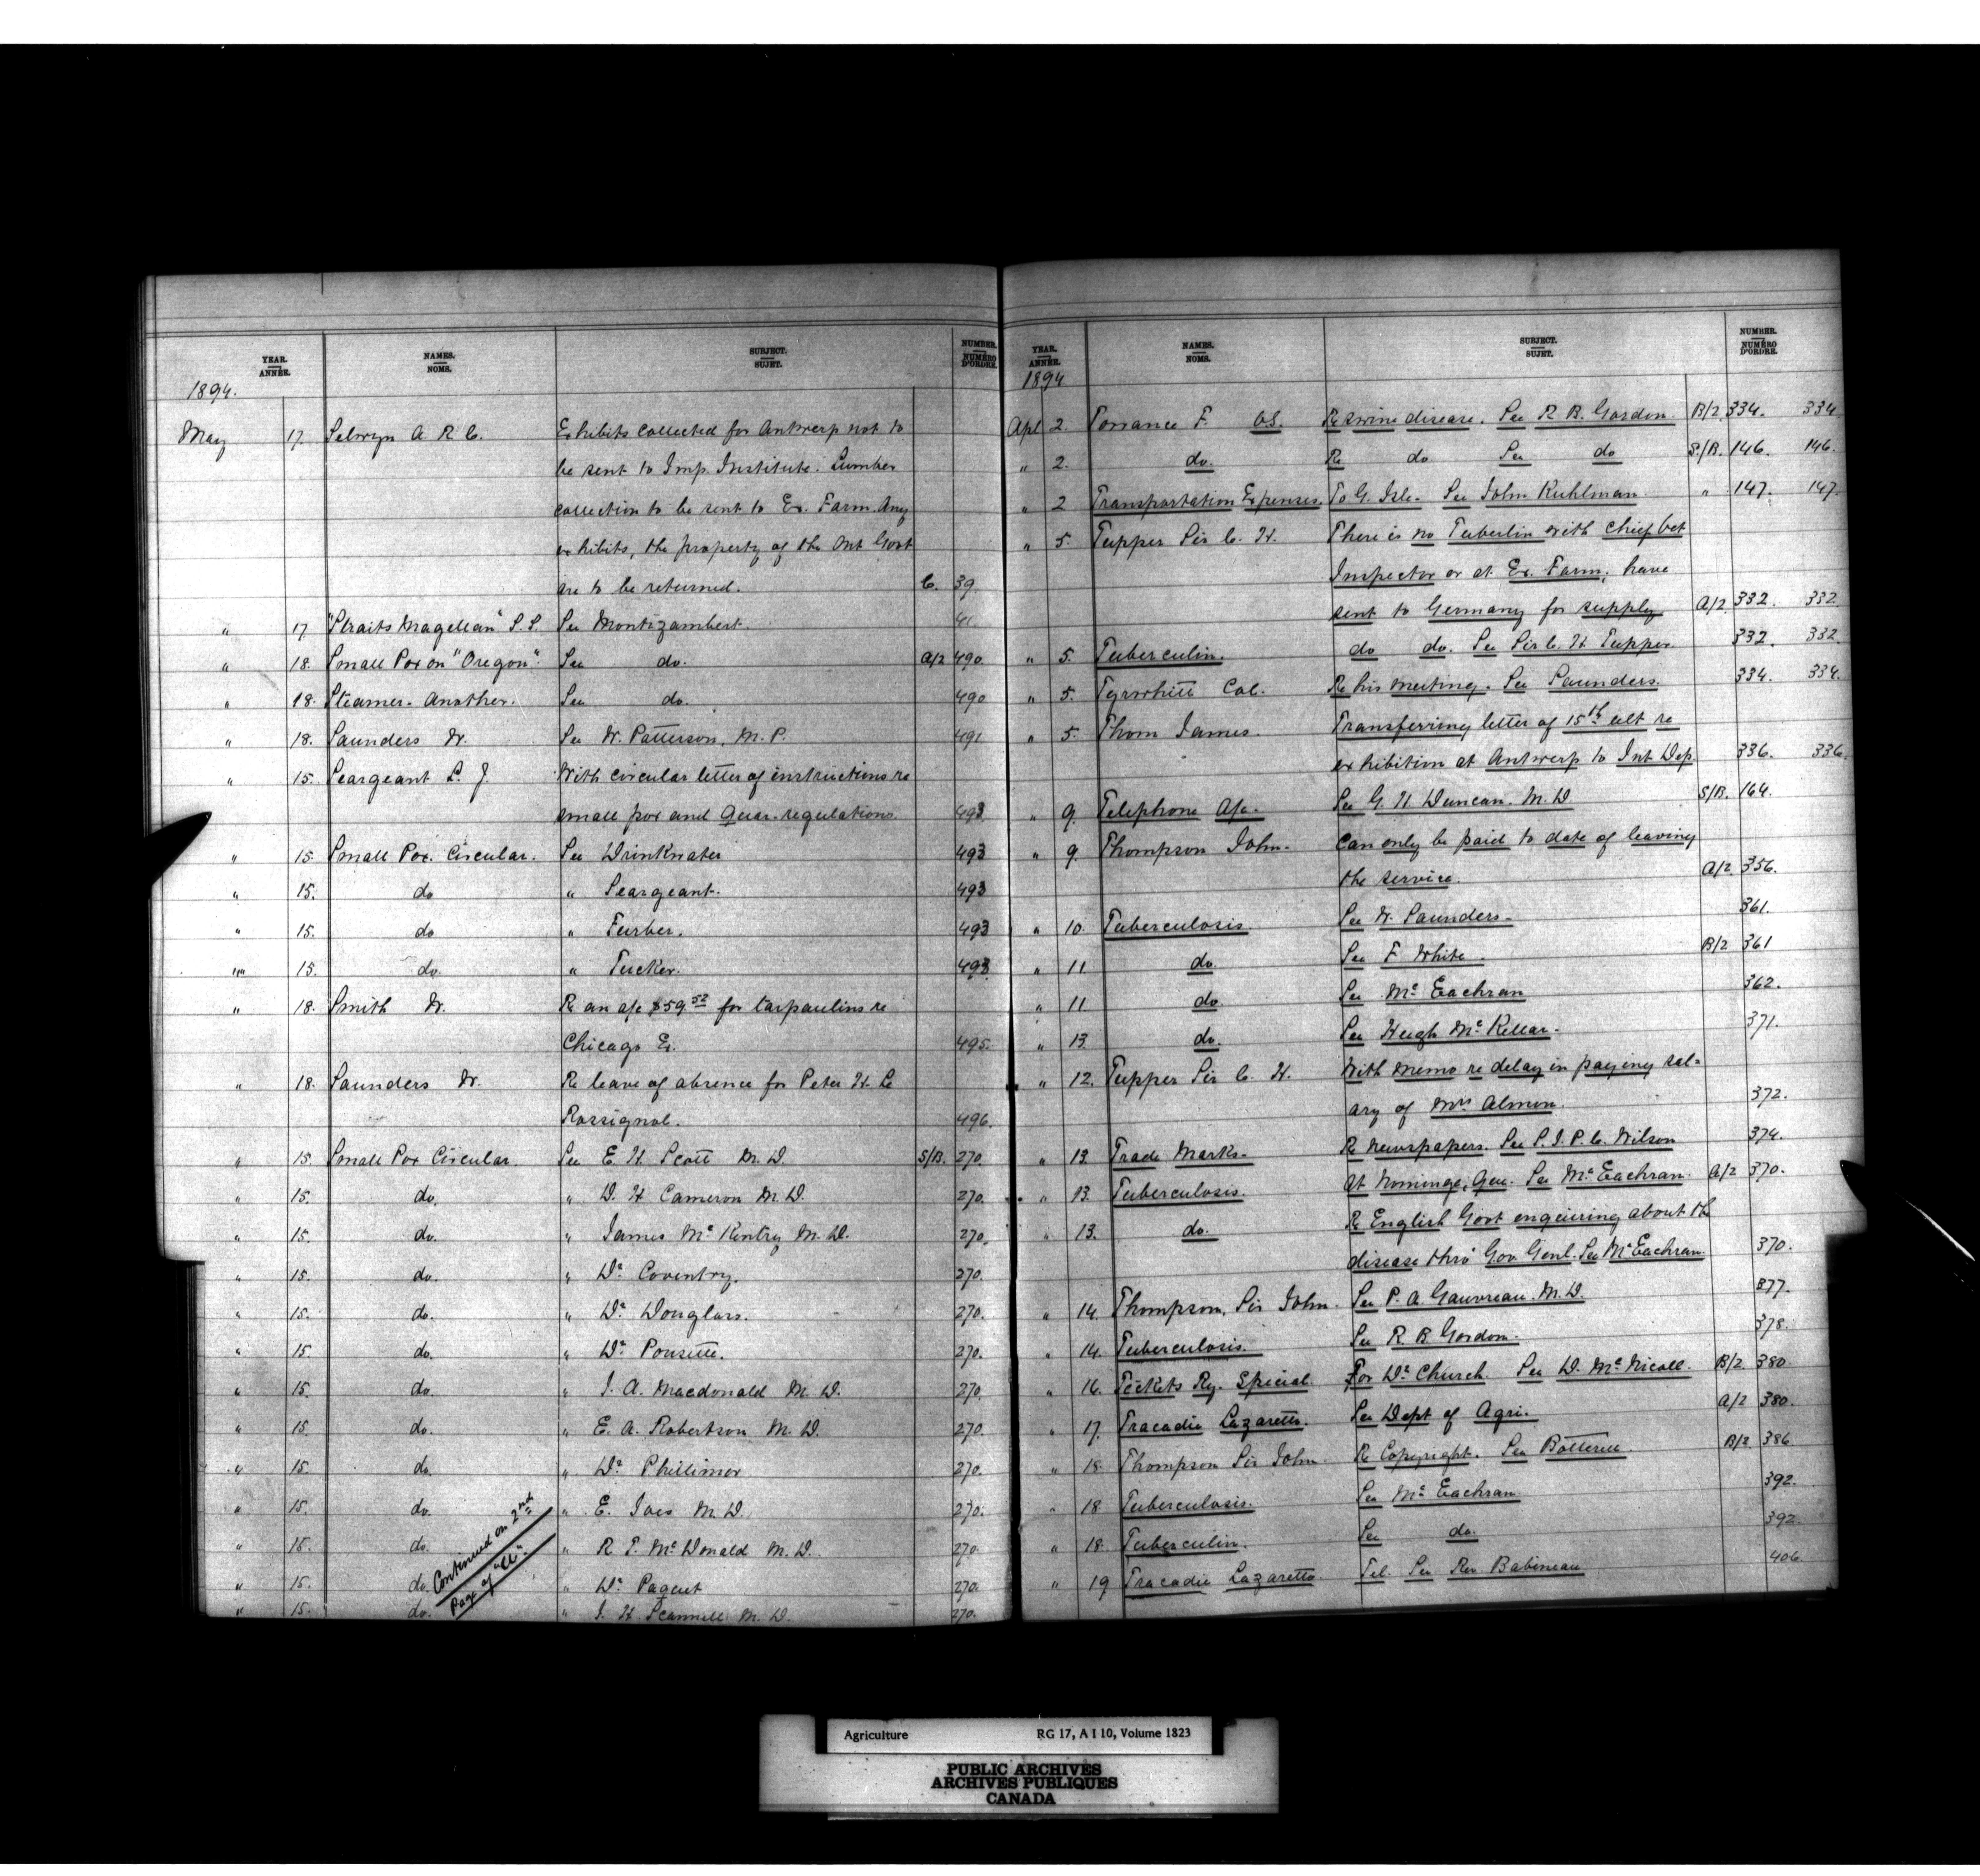 YEAR. ANNÉE. NAMES. NOMS. SUBJECT. SUJET. NUMBER. NUMÉRO D'ORDRE.
1894.
May 17. Selwyn A. R. C. Exhibits collected for Antwerp not to
be sent to Imp. Institute. Lumber
collection to be sent to Ex. Farm. Any
exhibits, the property of the Ont Govt
are to be returned. C. 39.
" 17 "Straits Magellan" S.S. See Montizambert. 41
" 18. Small Pox on "Oregon". See do. A/2 490.
" 18. Steamer. Another. See do. 490
" 18. Saunders W. See W. Patterson, M.P. 491
" 15. Seargeant L. J. With circular letter of instructions re
small pox and Quar. regulations. 493
" 15. Small Pox. Circular. See Drinkwater 493
" 15. do " Seargeant. 493
" 15. do " Furber. 493
" 15. do. " Tucker. 493
" 18. Smith W. Re an a/c $59.52 for tarpaulins re
Chicago Ex. 495.
" 18. Saunders W. Re leave of absence for Peter H. Le
Rossignol. 496.
" 15. Small Pox Circular. See E. H. Scott M.D. S/B. 270.
" 15. do. " D. H. Cameron M.D. 270.
" 15. do. " James McKentry M.D. 270.
" 15. do. " Dr. Coventry. 270.
" 15. do. " Dr. Douglass. 270.
" 15. do. " Dr. Pousette. 270.
" 15. do. " J. A. Macdonald M.D. 270.
" 15. do. " E. A. Robertson M.D. 270.
" 15. do. " Dr. Phillimor 270.
" 15. do. " E. Ives M.D. 270.
" 15. do. " R. T. McDonald M.D. 270.
" 15. do. " Dr. Paquet 270.
" 15. do. " J. H. Scammell M.D. 270.
Continued on 2nd
Page of "U".
YEAR. ANNÉE. NAMES. NOMS. SUBJECT. SUJET. NUMBER. NUMÉRO D'ORDRE.
1894
Apl 2. Torrance F. V.S. Re swine disease. See R. B. Gordon. B/2 334. 334
" 2. do. Re do See do S/B. 146. 146.
" 2 Transportation Expenses. To G. Isle. See John Kuhlman. " 147. 147.
" 5. Tupper Sir C. H. There is no Tuberlin with Chief Vet
Inspector or at Ex. Farm; have
sent to Germany for supply A/2 332. 332.
" 5. Tuberculin. do do. See Sir C. H. Tupper. 332. 332.
" 5. Tyrwhitt Col. Re his meeting. See Saunders. 334. 334.
" 5. Thom James. Transferring letter of 15th ult re
exhibition at Antwerp to Int Dep. 336. 336.
" 9. Telephone A/c. See G. H. Duncan. M.D S/B. 164.
" 9. Thompson John. Can only be paid to date of leaving
the service. A/2 356.
" 10. Tuberculosis. See W. Saunders. 361.
" 11. do. See F White. B/2 361
" 11 do. See McEachran 362.
" 13. do. See Hugh McKellar. 371.
" 12. Tupper Sir C. H. With memo re delay in paying sal=
ary of Mrs Almon. 372.
" 13. Trade Marks. Re Newspapers. See P. I. P. C. Wilson 374.
" 13. Tuberculosis. At Nominge, Que. See McEachran. A/2 370.
" 13. do. Re English Govt enquiring about the
disease thro' Gov Genl. See McEachran. 370.
" 14. Thompson, Sir John. See P. A. Gauvreau. M.D. 377.
" 14. Tuberculosis. See R. B. Gordon. 378.
" 16. Tickets Ry. Special. For Dr. Church. See D. McNicoll. B/2 380.
" 17. Tracadie Lazaretto. See Dept of Agri. A/2 380.
" 18. Thompson Sir John. Re Copyright. See Botterell. B/2 386
" 18 Tuberculosis. See McEachran 392.
" 18. Tuberculin. See do. 392.
" 19 Tracadie Lazaretto. Tel. See Rev. Babineau 406.
Agriculture RG 17, A I 10, Volume 1823
PUBLIC ARCHIVES
ARCHIVES PUBLIQUES
CANADA